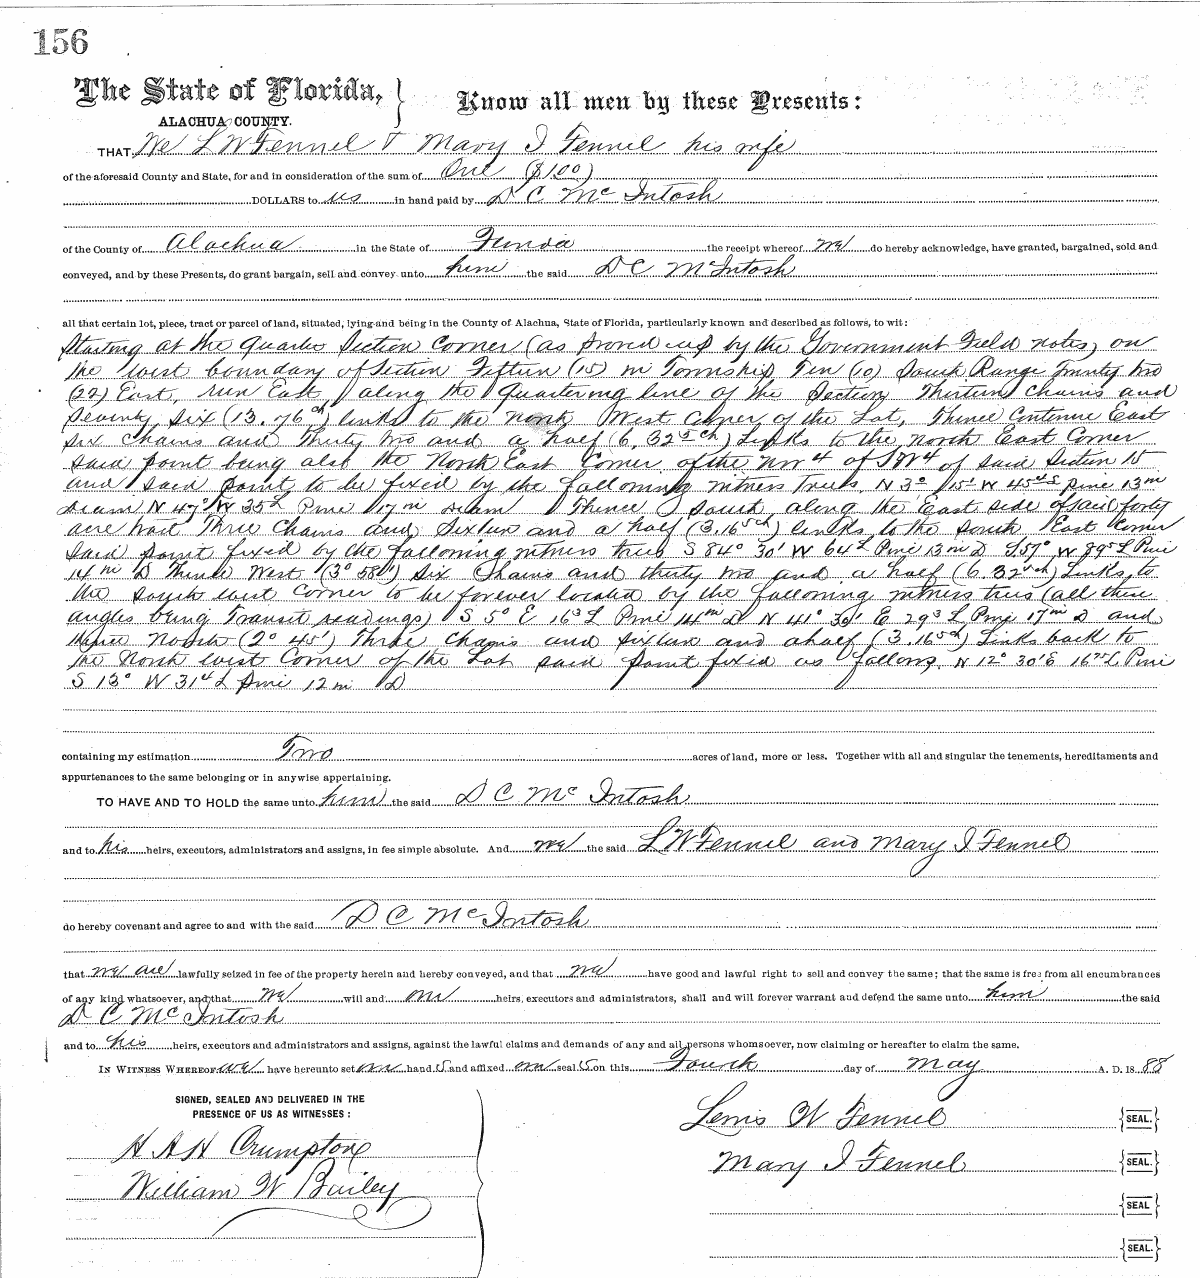 156
The State of Florida, } Know all men by these Presents:
ALACHUA COUNTY.
THAT We L W Fennel & Mary I Fennel his wife
of the aforesaid County and State, for and in consideration of the sum of One ($1.00)
DOLLARS to us in hand paid by D C McIntosh
of the County of Alachua in the State of Florida the receipt whereof we do hereby acknowledge, have granted, bargained, sold and
conveyed, and by these Presents, do grant bargain, sell and convey unto him the said D C McIntosh
all that certain lot, piece, tract or parcel of land, situated, lying and being in the County of Alachua, State of Florida, particularly known and described as follows, to wit:
Starting at the Quarter Section Corner (as proved up by the Government Field notes) on
the west boundary of Section Fifteen (15) in Township Ten (10) South Range Twenty two
(22) East, run East along the Quartering line of the Section Thirteen Chains and
Seventy Six (13.76 ch) links to the North West Corner of the Lot, Thence Continue East
Six Chains and Thirty two and a half (6.32 5 ch) Links to the North East Corner
said point being also the North East Corner of the NW 4 of SW 4 of said Section 15
and said point to be fixed by the following witness trees N 3° 15' W 45 Pine 13 in
Diam N 47° W 35 L Pine 17 in Diam Thence South along the East side of said forty
acre Three Chains and Sixteen and a half (3.16 5 ch) links to the South East Corner
said point fixed by the following witness trees S 84° 30' W 64 L Pine 13 in D S 57° W 89 L Pine
14 in D Thence West (3° 58') Six Chains and thirty two and a half (6.32 ch) Links to
the South west Corner to be forever located by the following witness trees (all these
angles being Transit readings) S 5° E 16 3 L Pine 14 in D N 41° 30' E 29 3 L Pine 17 in D and
thence North (2° 45') Three Chains and Sixteen and a half (3.16 5 ch) Links back to
the North west Corner of the Lot said point fixed as follows, N 12° 30' E 16 L Pine
S 13° W 31 4 L Pine 12 in D
containing my estimation Two acres of land, more or less. Together with all and singular the tenements, hereditaments and
appurtenances to the same belonging or in anywise appertaining.
TO HAVE AND TO HOLD the same unto him the said D C McIntosh
and to his heirs, executors, administrators and assigns, in fee simple absolute. And we the said L W Fennel and Mary I Fennel
do hereby covenant and agree to and with the said D C McIntosh
that we are lawfully seized in fee of the property herein and hereby conveyed, and that we have good and lawful right to sell and convey the same; that the same is free from all encumbrances
of any kind whatsoever, and that we will and our heirs, executors and administrators, shall and will forever warrant and defend the same unto him the said
D C McIntosh
and to his heirs, executors and administrators and assigns, against the lawful claims and demands of any and all persons whomsoever, now claiming or hereafter to claim the same.
IN WITNESS WHEREOF we have hereunto set our hand S and affixed our seal S on this Fourth day of May A. D. 18 88
SIGNED, SEALED AND DELIVERED IN THE
PRESENCE OF US AS WITNESSES:
H A H Crumpton
William W Bailey
Lewis W Fennel {SEAL.}
Mary I Fennel {SEAL.}
{SEAL}
{SEAL.}